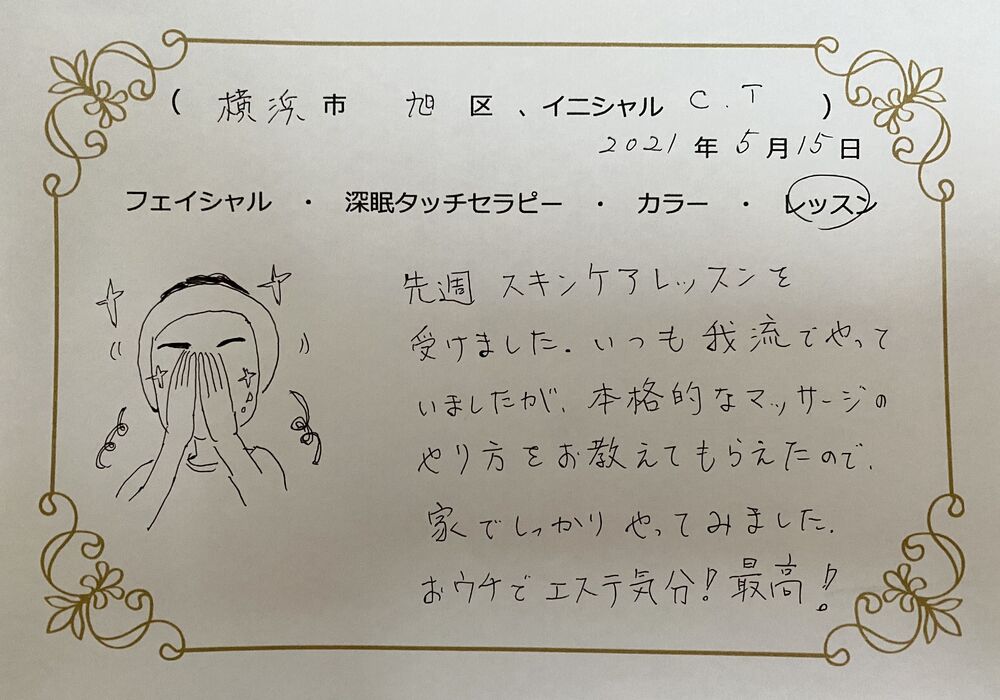 ( 横浜 市 旭 区 、イニシャル C.T )
2021 年 5 月 15 日
フェイシャル ・ 深眠タッチセラピー ・ カラー ・ レッスン
先週 スキンケアレッスンを
受けました. いつも 我流でやって
いましたが、本格的なマッサージの
やり方をお教えてもらえたので、
家でしっかり やってみました.
おウチで エステ気分! 最高!